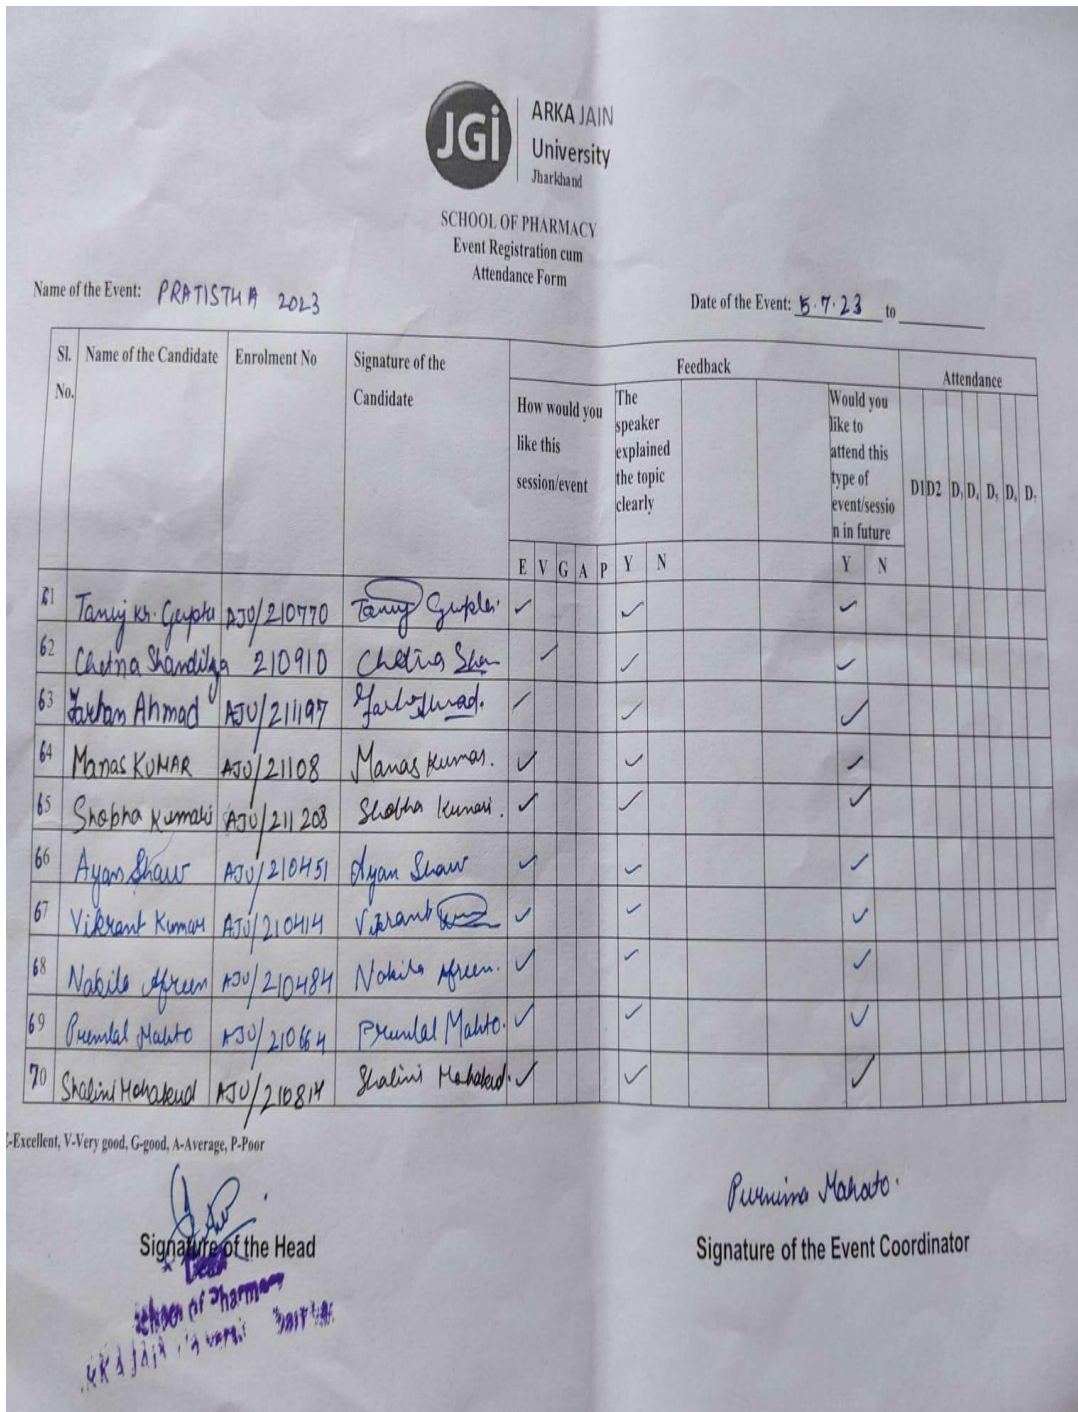 JGi
ARKA JAIN
University
Jharkhand
SCHOOL OF PHARMACY
Event Registration cum
Attendance Form
Name of the Event: PRATISTHA 2023
Date of the Event: 5.7.23 to
Sl. No. Name of the Candidate Enrolment No Signature of the Candidate Feedback Attendance
How would you like this session/event The speaker explained the topic clearly Would you like to attend this type of event/session in future D1 D2 D3 D4 D5 D6 D7
E V G A P Y N Y N
61 Tanuj Kr. Gupta AJU/210770 Tanuj Gupta ✓ ✓ ✓
62 Chetna Shandilya 210910 Chetna ✓ ✓ ✓
63 Farhan Ahmad AJU/211197 ✓ ✓ ✓
64 Manas KUMAR AJU/21108 Manas Kumar. ✓ ✓ ✓
65 Shobha Kumari AJU/211208 Shobha Kumari. ✓ ✓ ✓
66 Ayan Shaw AJU/210451 Ayan Shaw ✓ ✓ ✓
67 Vikrant Kumar AJU/210414 Vikrant ✓ ✓ ✓
68 Nabila Afreen AJU/210484 Nabila Afreen. ✓ ✓ ✓
69 Premlal Mahto AJU/210664 Premlal Mahto. ✓ ✓ ✓
70 Shalini Mohakud AJU/210814 Shalini Mohakud. ✓ ✓ ✓
E-Excellent, V-Very good, G-good, A-Average, P-Poor
Purnima Mahato.
Signature of the Head
Signature of the Event Coordinator
Dean
School of Pharmacy